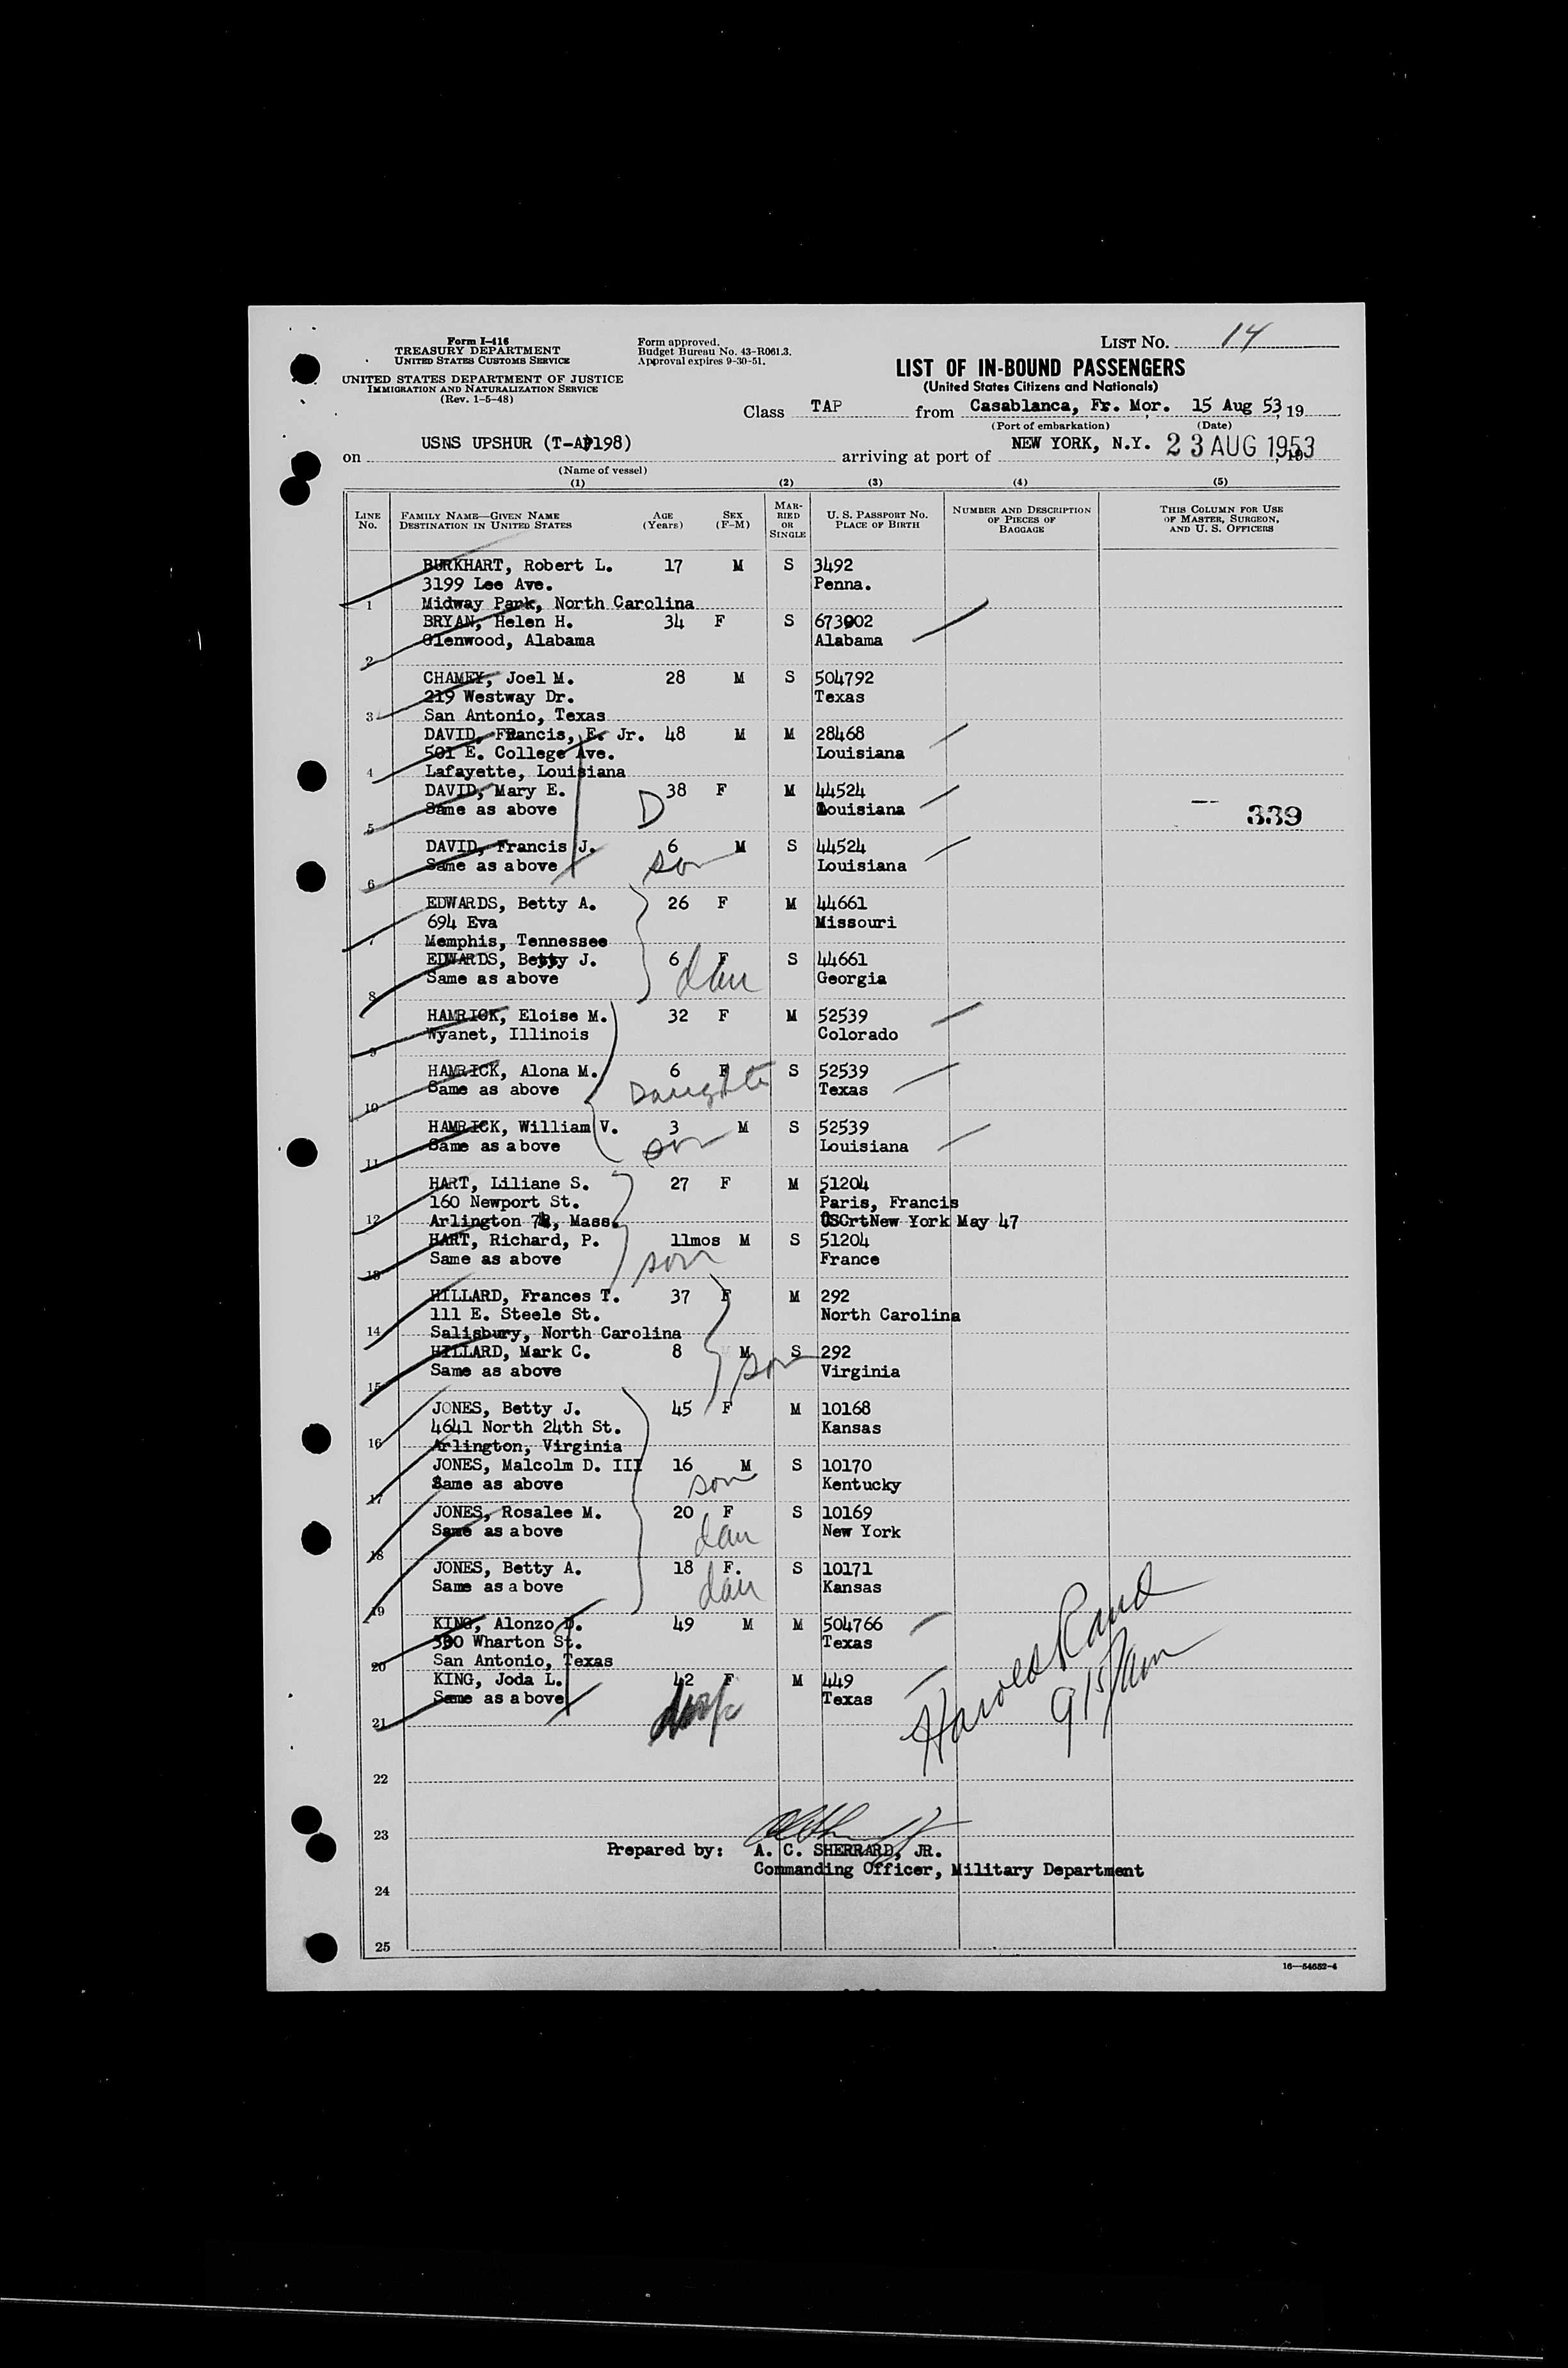 Form I-416
TREASURY DEPARTMENT
UNITED STATES CUSTOMS SERVICE
UNITED STATES DEPARTMENT OF JUSTICE
IMMIGRATION AND NATURALIZATION SERVICE
(Rev. 1-5-48)
Form approved.
Budget Bureau No. 43-R061.3.
Approval expires 9-30-51.
LIST No. 14
LIST OF IN-BOUND PASSENGERS
(United States Citizens and Nationals)
Class TAP from Casablanca, Fr. Mor. 15 Aug 53, 19
(Port of embarkation) (Date)
on USNS UPSHUR (T-AP198) arriving at port of NEW YORK, N.Y. 23 AUG 1953
(Name of vessel)
(1) (2) (3) (4) (5)
LINE No. FAMILY NAME—GIVEN NAME DESTINATION IN UNITED STATES AGE (Years) SEX (F-M) MARRIED OR SINGLE U. S. PASSPORT No. PLACE OF BIRTH NUMBER AND DESCRIPTION OF PIECES OF BAGGAGE THIS COLUMN FOR USE OF MASTER, SURGEON, AND U. S. OFFICERS
BURKHART, Robert L. 17 M S 3492
3199 Lee Ave. Penna.
1 Midway Park, North Carolina
BRYAN, Helen H. 34 F S 673002
Glenwood, Alabama Alabama
2
CHAMEY, Joel M. 28 M S 504792
219 Westway Dr. Texas
3 San Antonio, Texas
DAVID, Francis, E. Jr. 48 M M 28468
501 E. College Ave. Louisiana
4 Lafayette, Louisiana
DAVID, Mary E. 38 F M 44524
Same as above D Louisiana 339
5
DAVID, Francis J. 6 M S 44524
Same as above son Louisiana
6
EDWARDS, Betty A. 26 F M 44661
694 Eva Missouri
7 Memphis, Tennessee
EDWARDS, Betty J. 6 F S 44661
Same as above dau Georgia
8
HAMRICK, Eloise M. 32 F M 52539
Wyanet, Illinois Colorado
9
HAMRICK, Alona M. 6 F S 52539
Same as above Daughter Texas
10
HAMRICK, William V. 3 M S 52539
Same as above son Louisiana
11
HART, Liliane S. 27 F M 51204
160 Newport St. Paris, Francis
12 Arlington 74, Mass. USCrtNew York May 47
HART, Richard, P. 11mos M S 51204
Same as above son France
13
HILLARD, Frances T. 37 F M 292
111 E. Steele St. North Carolina
14 Salisbury, North Carolina
HILLARD, Mark C. 8 M S 292
Same as above son Virginia
15
JONES, Betty J. 45 F M 10168
4641 North 24th St. Kansas
16 Arlington, Virginia
JONES, Malcolm D. III 16 M S 10170
Same as above son Kentucky
17
JONES, Rosalee M. 20 F S 10169
Same as above dau New York
18
JONES, Betty A. 18 F. S 10171
Same as above dau Kansas
19
KING, Alonzo D. 49 M M 504766
300 Wharton St. Texas
20 San Antonio, Texas
KING, Joda L. 42 F M 449
Same as above Texas
21
Harold Rand
915 am
22
23
Prepared by: A. C. SHERRARD, JR.
Commanding Officer, Military Department
24
25
16—54652-4